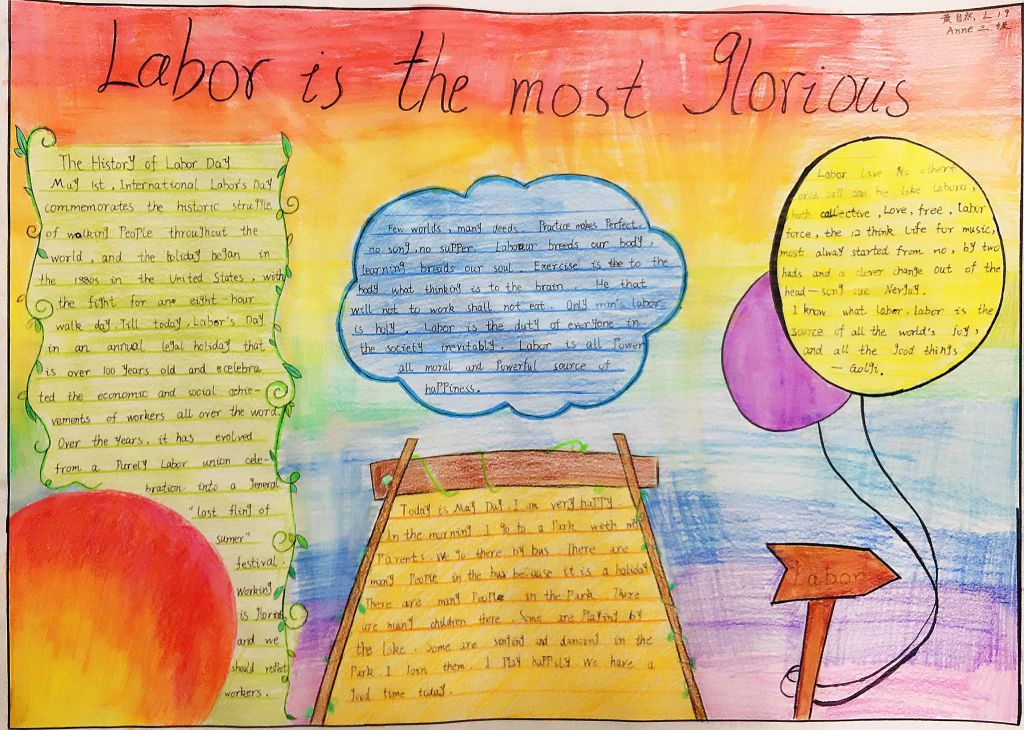 黄自然, L19
Anne 二级
Labor is the most glorious
The History of Labor Day
May 1st, International Labor's Day
commemorates the historic struggle
of walking People throughout the
world, and the holiday began in
the 1880s in the United States, with
the fight for an eight-hour
walk day. Till today, Labor's Day
in an annual legal holiday that
is over 100 years old and celebra
ted the economic and social achie-
vements of workers all over the word.
Over the years, it has evolved
from a Purely Labor union cele-
bration into a general
"last fling of
sumer"
festival.
Working
is glorious
and we
should reflet
workers.
Few worlds, many deeds. Practice makes Perfect.
no song, no supper. Labour breeds our body,
learning breads our soul. Exercise is the to the
body what thinking is to the brain. He that
will not to work shall not eat. Only man's labor
is holy. Labor is the duty of everyone in
the society inevitably. Labor is all Power
all moral and Powerful source of
haPPiness.
Labor love No other
force can be like
both collective, Love, free, labor
force, the 12 think Life for music,
most alway started from no, by two
hads and a clever change out of the
head—song
I know what labor, labor is the
source of all the world's joy,
and all the good things
— Golgi.
Today is May Day. I am very haPPy
In the morning I go to a Park with my
Parents. We go there by bus. There are
many People in the bus because it is a holiday
There are many People in the Park. There
are many children there. Some are Playing by
the lake. Some are singing and dancing in the
Park I Join them. I Play haPPily We have a
good time today.
Labor